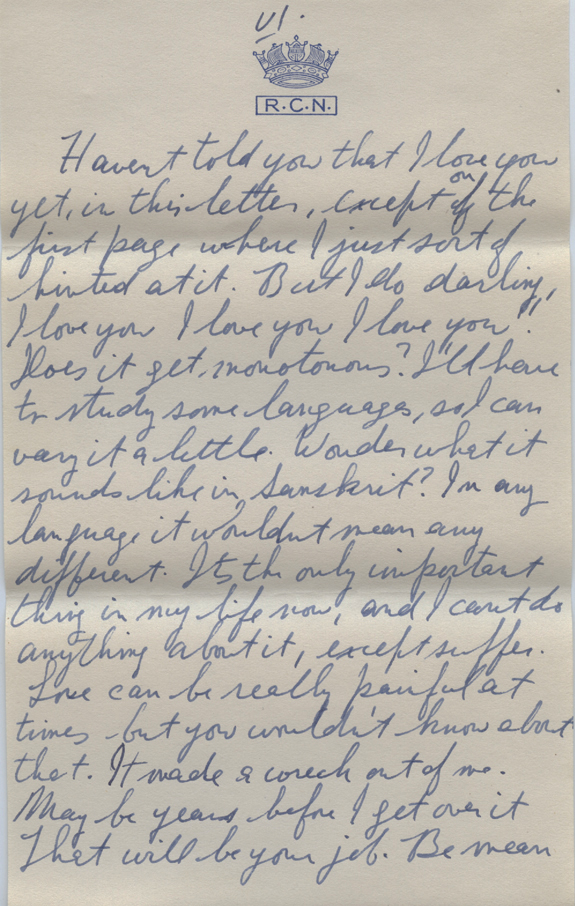 VI.
R.C.N.
Havent told you that I love you
yet, in this letter, except on of the
first page where I just sort of
hinted at it. But I do darling,
I love you I love you I love you"!
Does it get monotonous? I'll have
to study some languages, so I can
vary it a little. Wonder what it
sounds like in Sanskrit? In any
language it wouldnt mean any
different. Its the only important
thing in my life now, and I cant do
anything about it, except suffer.
Love can be really painful at
times - but you wouldn't know about
that. It made a wreck out of me.
May be years before I get over it
That will be your job. Be mean